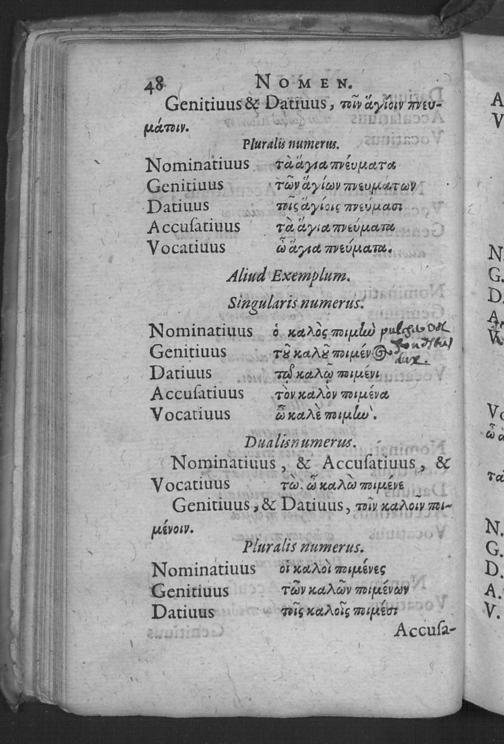 48 NOMEN.
Genitiuus & Datiuus, τοῖν ἁγίοιν πνευ-
μάτοιν.
Pluralis numerus.
Nominatiuus τὰ ἅγια πνεύματα
Genitiuus τῶν ἁγίων πνευμάτων
Datiuus τοῖς ἁγίοις πνεύμασι
Accusatiuus τὰ ἅγια πνεύματα
Vocatiuus ὦ ἅγια πνεύματα.
Aliud Exemplum.
Singularis numerus.
Nominatiuus ὁ καλὸς ποιμὴν
Genitiuus τοῦ καλοῦ ποιμένος
Datiuus τῷ καλῷ ποιμένι
Accusatiuus τὸν καλὸν ποιμένα
Vocatiuus ὦ καλὲ ποιμὴν.
Dualis numerus.
Nominatiuus, & Accusatiuus, &
Vocatiuus τὼ. ὦ καλὼ ποιμένε
Genitiuus, & Datiuus, τοῖν καλοῖν ποι-
μένοιν.
Pluralis numerus.
Nominatiuus οἱ καλοὶ ποιμένες
Genitiuus τῶν καλῶν ποιμένων
Datiuus τοῖς καλοῖς ποιμέσι
Accusa-
A
V
N
G.
D
A.
Vo
N.
G.
D.
A.
V.